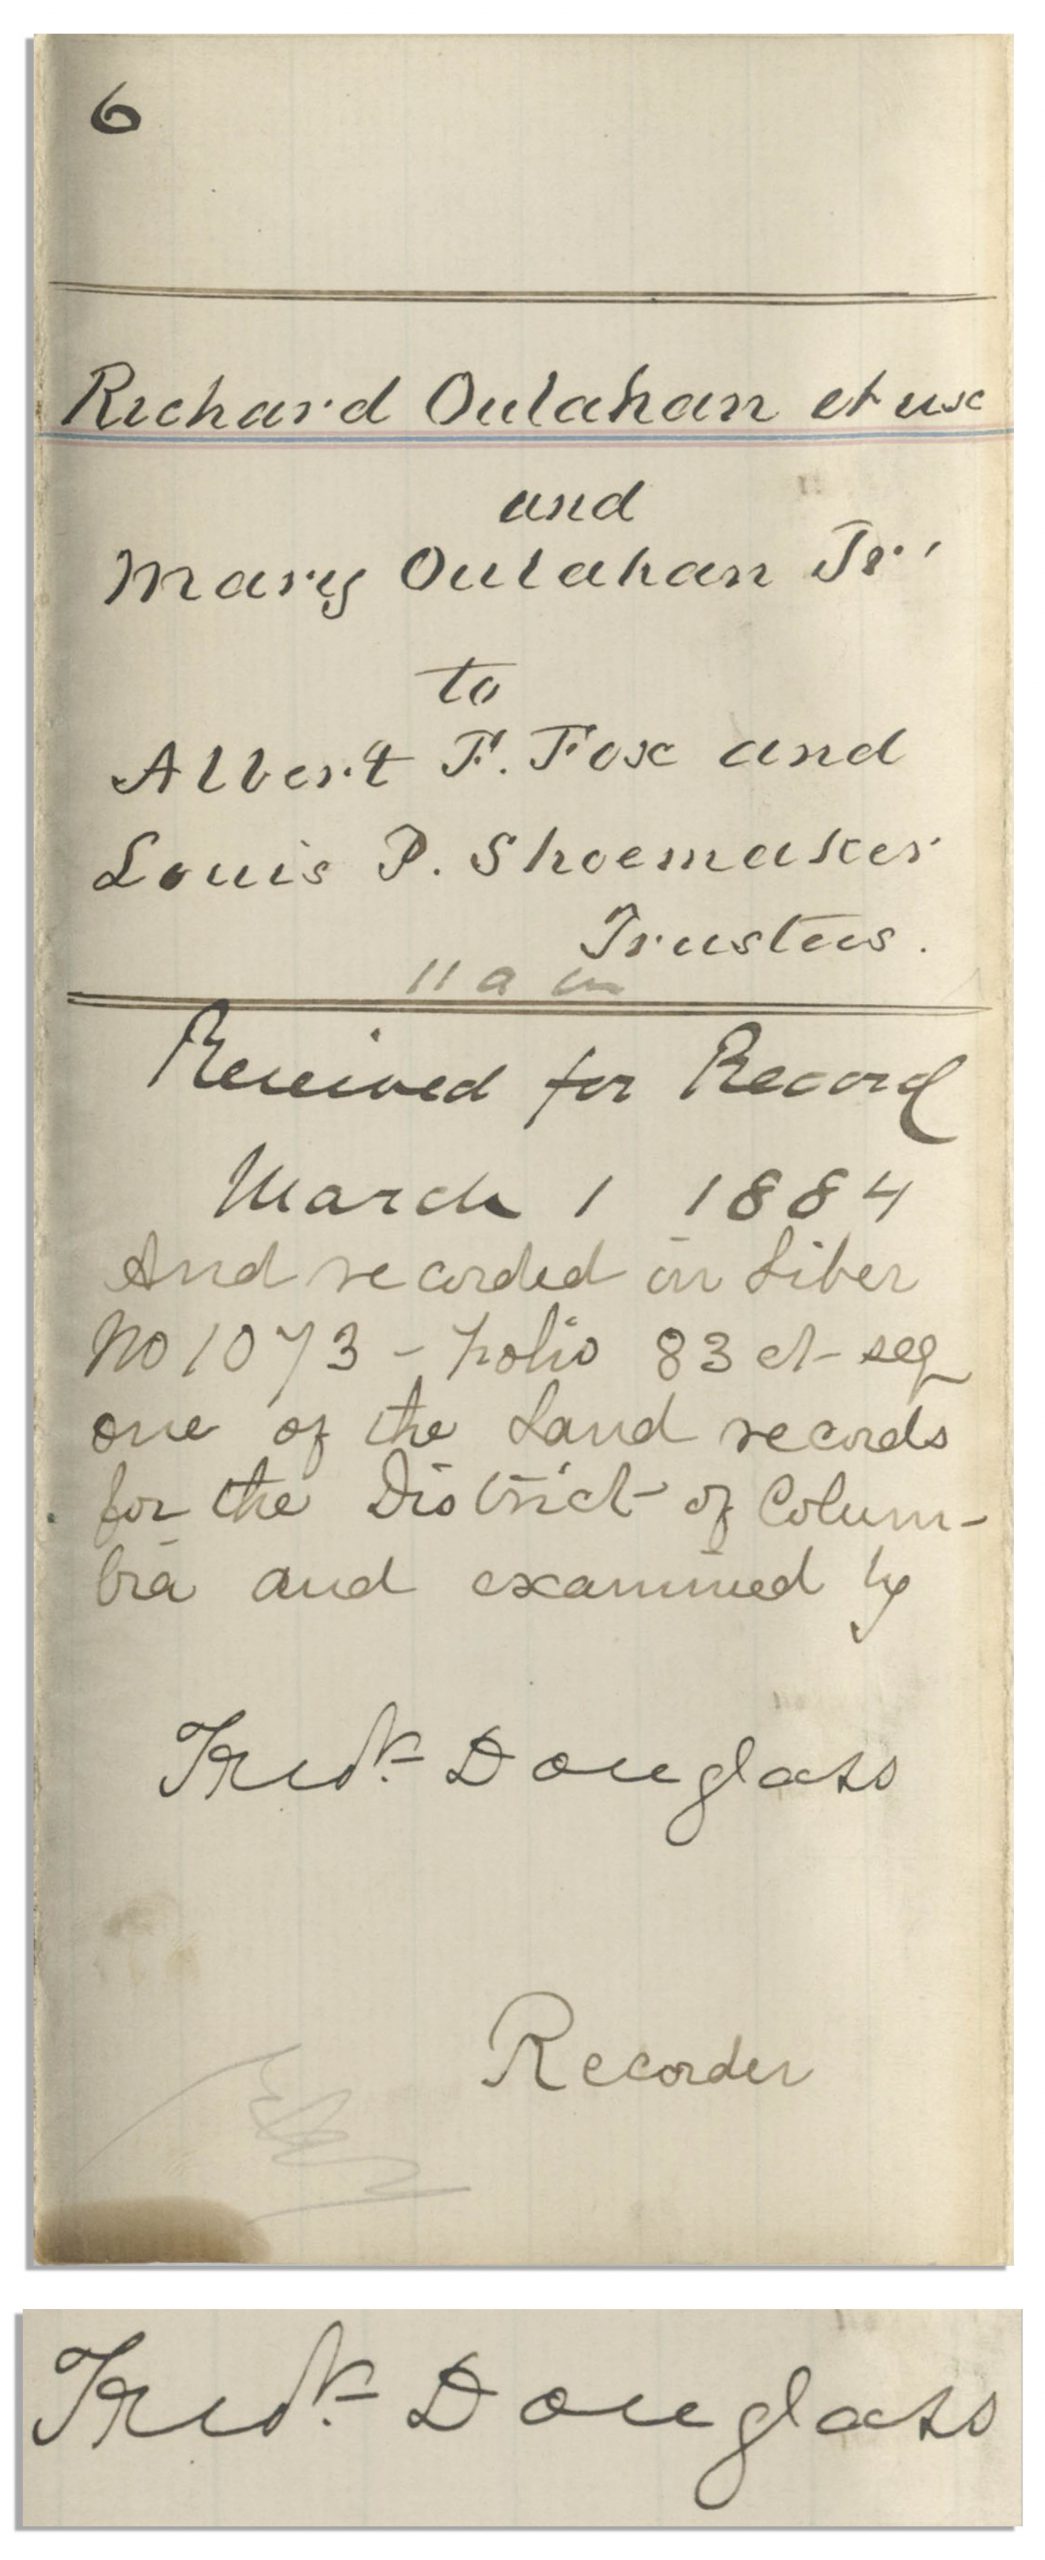 6
Richard Oulahan et ux
and
Mary Oulahan Jr.
to
Albert F. Fox and
Louis P. Shoemaker
Trustees.
11 a m
Received for Record
March 1 1884
And recorded in Liber
No 1073 - folio 83 et seq
one of the Land records
for the District of Colum-
bia and examined by
Fredk Douglass
Recorder
Fredk Douglass